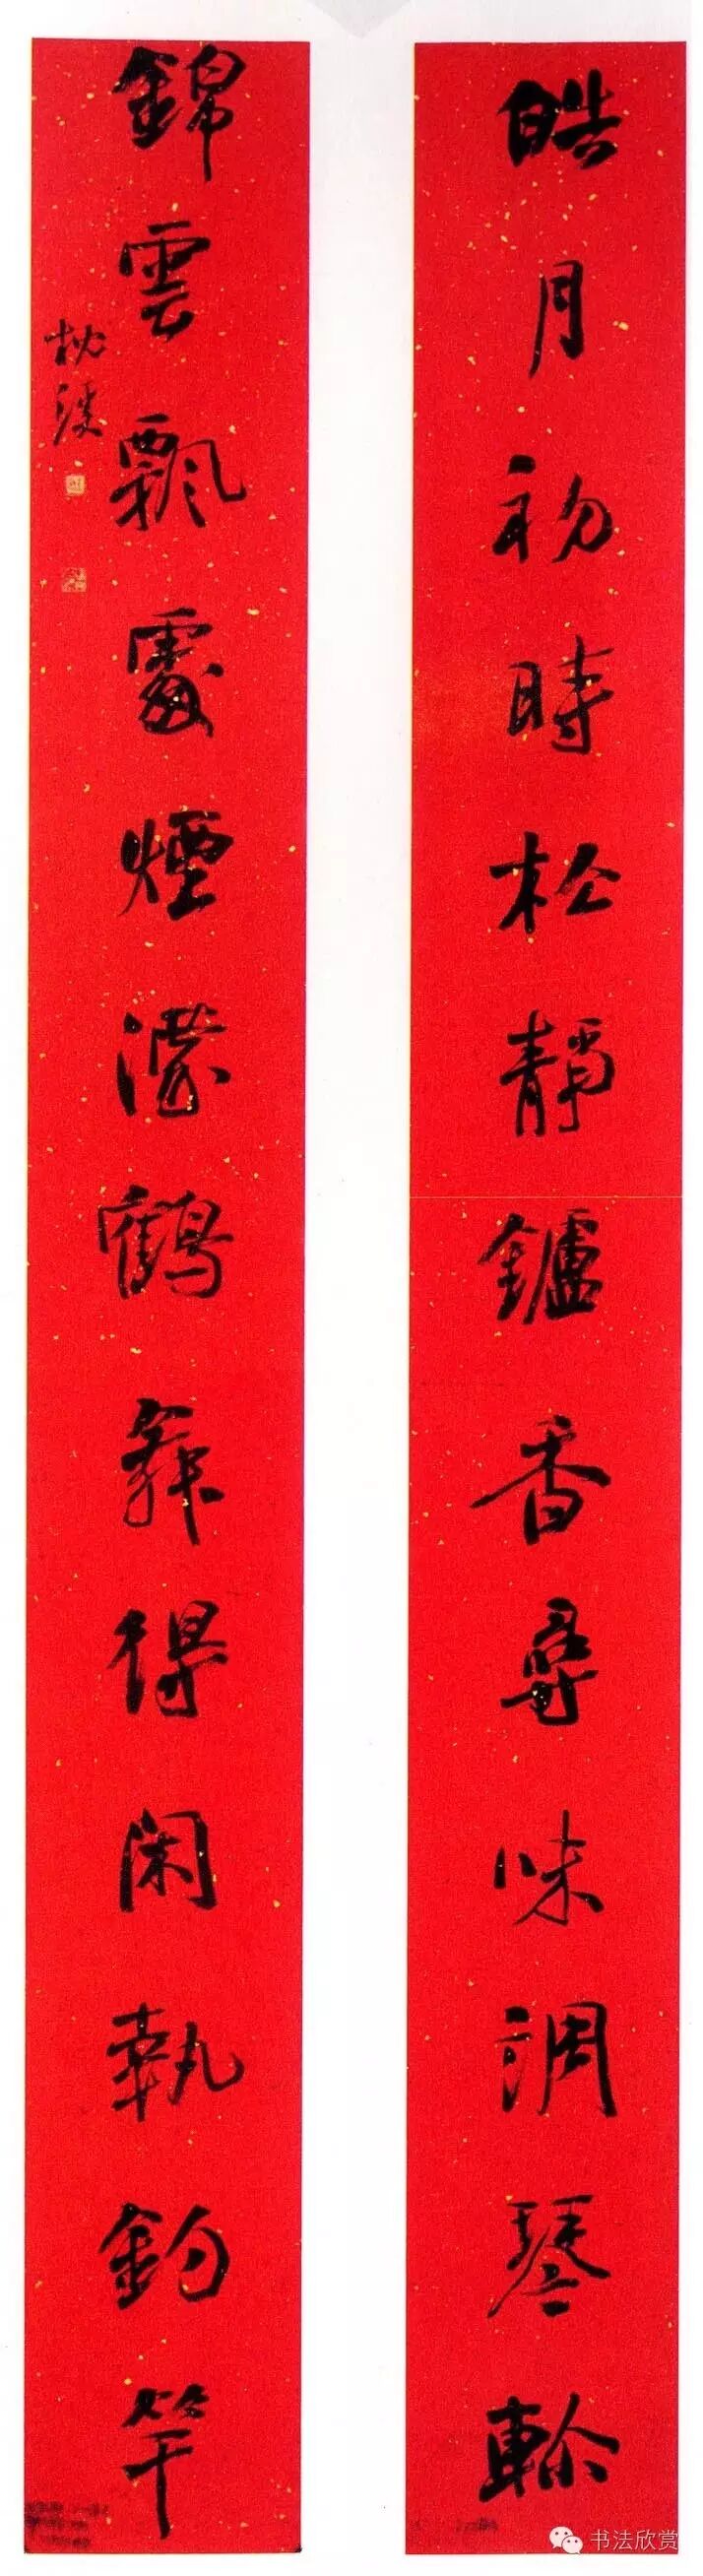 皓月初時松靜鑪香尋味調琴軫
錦雲飄處煙濃鶴舞得閑執釣竿
枕
书法欣赏